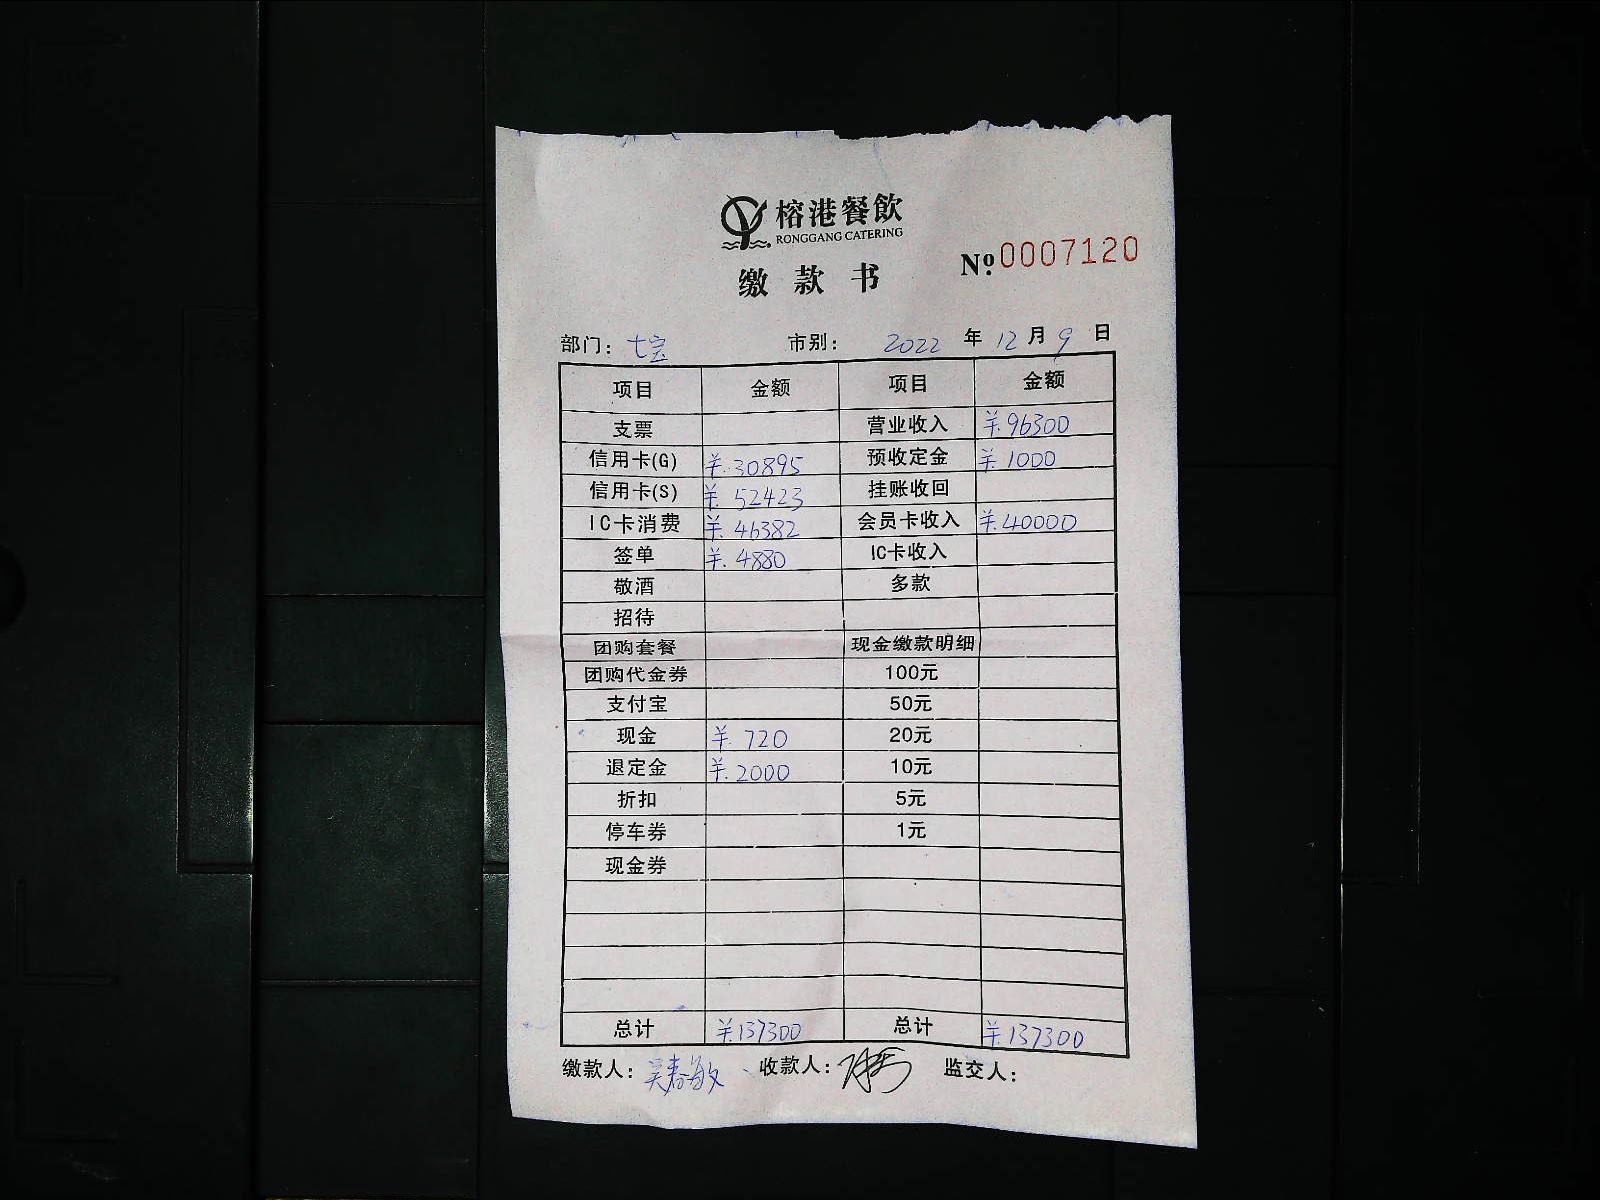 榕港餐飲
RONGGANG CATERING
缴款书 №0007120
部门：七宝 市别： 2022年12月9日
项目 金额 项目 金额
支票 营业收入 ¥.96300
信用卡(G) ¥.30895 预收定金 ¥.1000
信用卡(S) ¥.52423 挂账收回
IC卡消费 ¥.46382 会员卡收入 ¥.40000
签单 ¥.4880 IC卡收入
敬酒 多款
招待
团购套餐 现金缴款明细
团购代金券 100元
支付宝 50元
现金 ¥.720 20元
退定金 ¥.2000 10元
折扣 5元
停车券 1元
现金券
总计 ¥.137300 总计 ¥.137300
缴款人：吴春敏 收款人： 监交人：